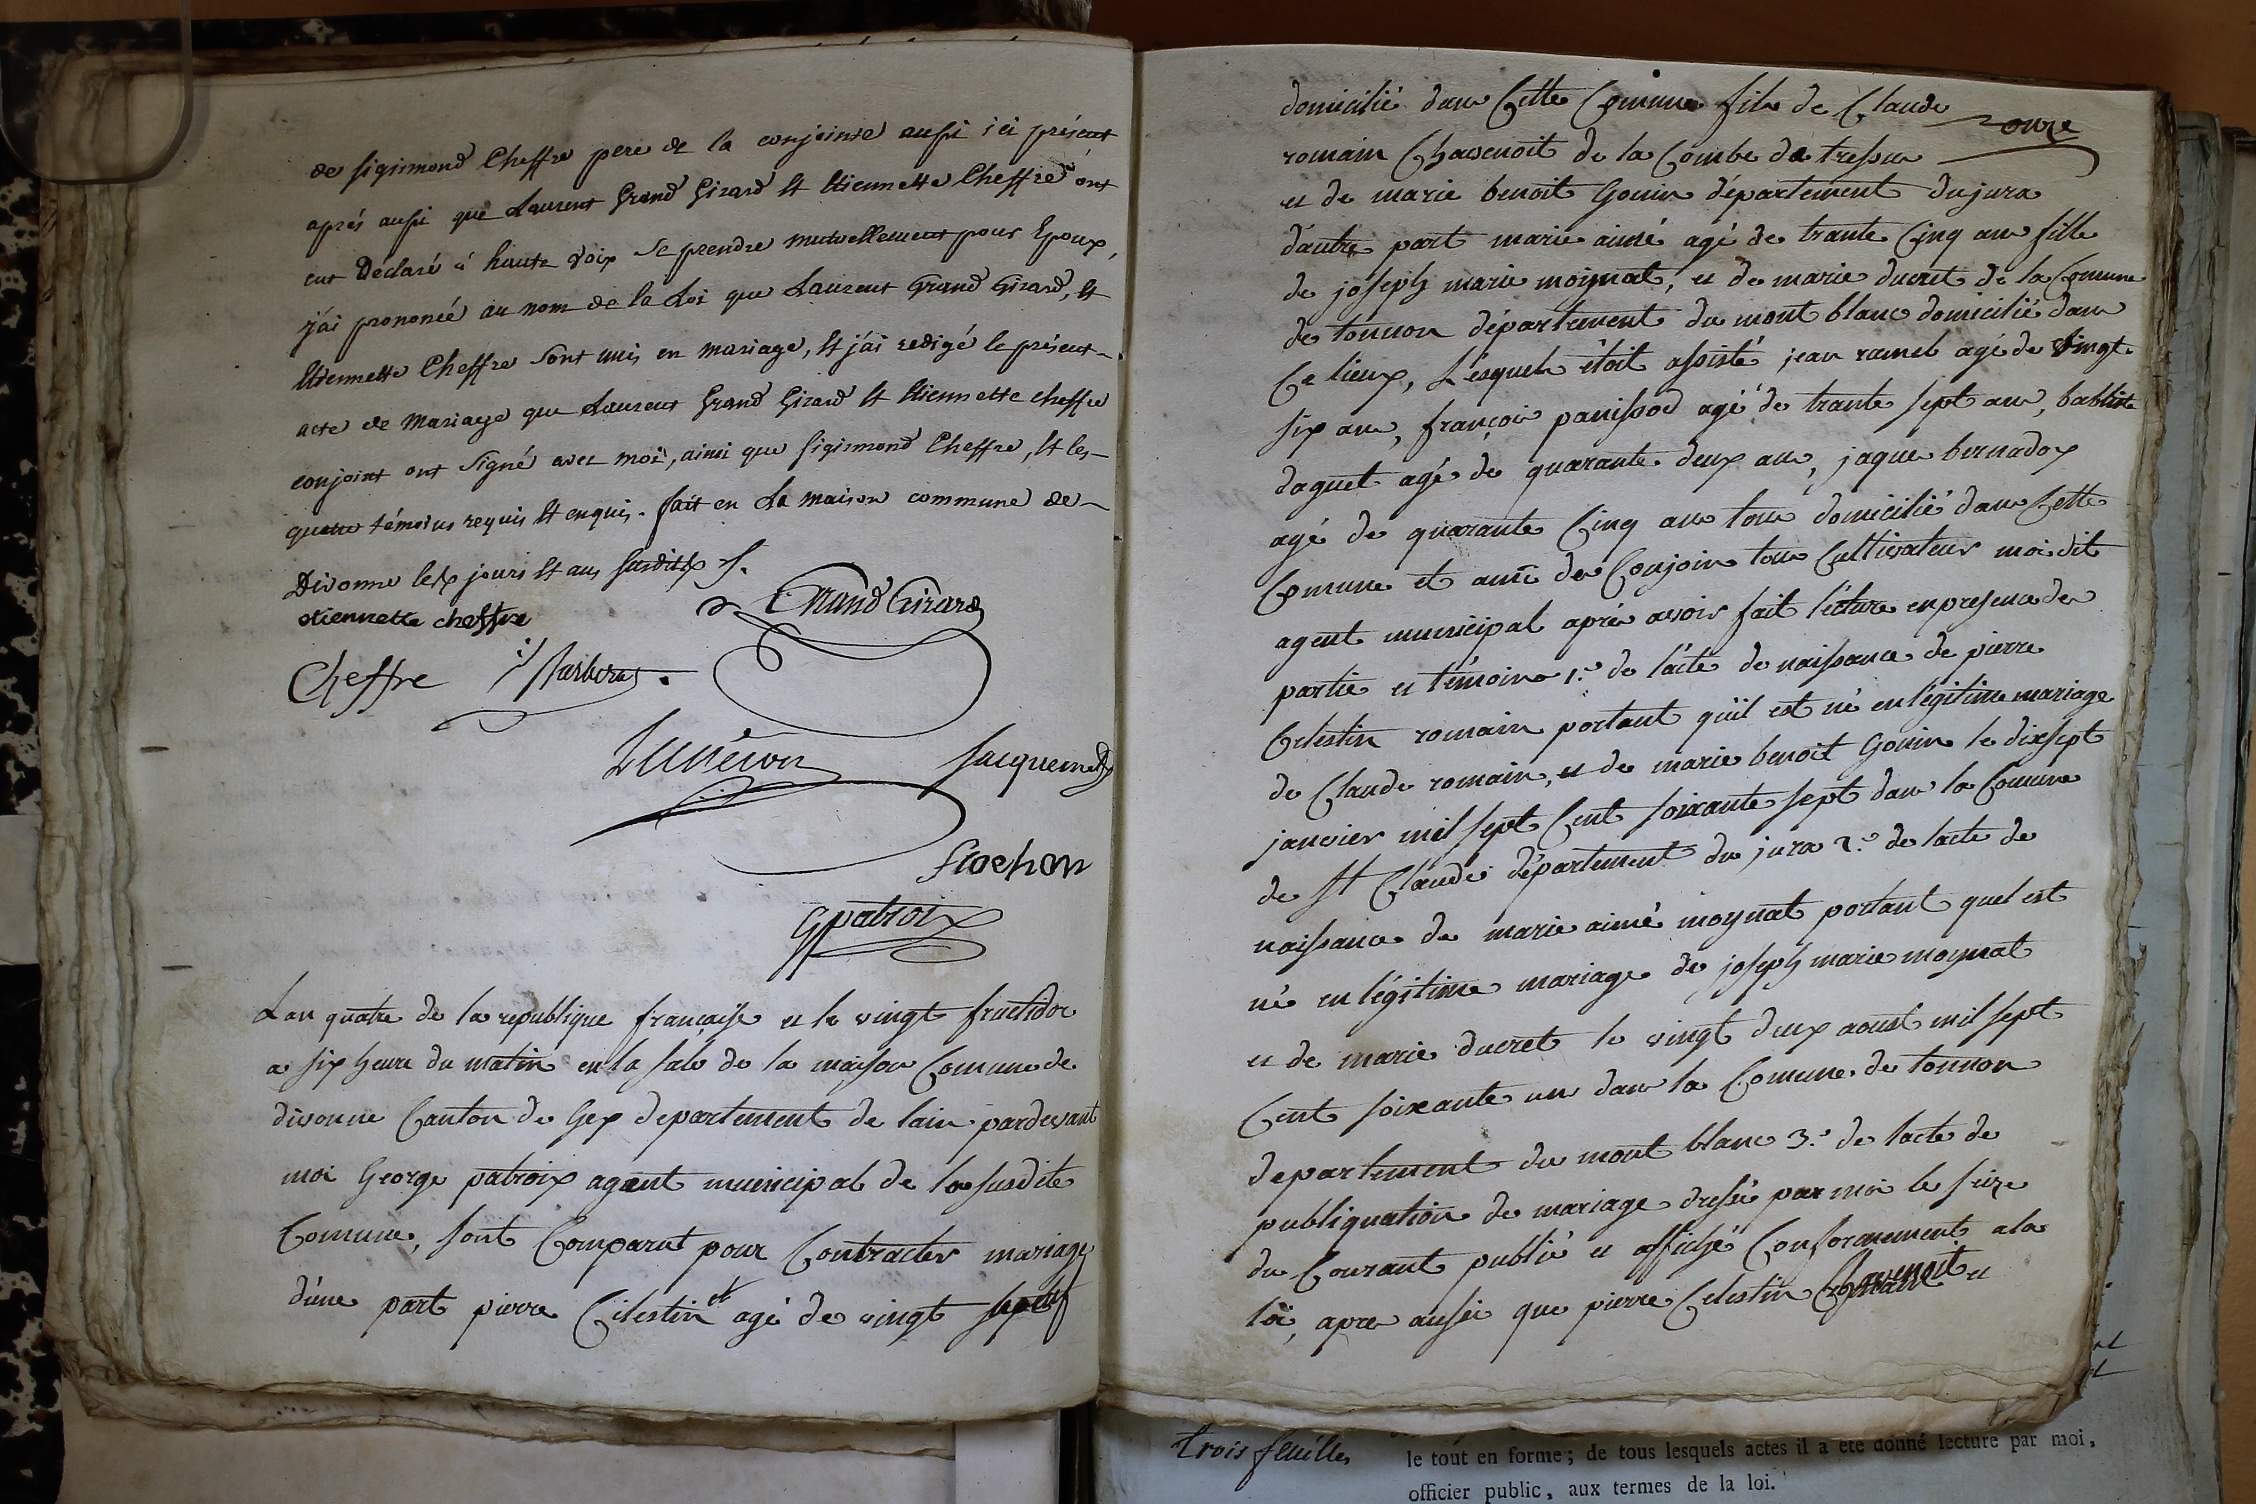 de sigismond Cheffre pere de la conjointe aussi ici présent
après aussi que Laurent Grand Girard et Etiennette Cheffre ont
eut Déclaré à haute voix se prendre mutuellement pour Epoux,
j'ai prononcé au nom de la Loi que Laurent Grand Girard, et
Etiennette Cheffre sont unis en mariage, et j'ai redigé le présent
acte de Mariage que Laurent Grand Girard et Etiennette cheffre
conjoint ont signé avec moi, ainsi que sigismond Cheffre, et les
quatre témoins requis et enquis. fait en La maison commune de
Divonne les jours et ans susdits
etiennette cheffre
Grand Girard
Cheffre
Jacquemet
Frochon
G patroix
Lan quatre de la republique française et le vingt fructidor
a six heure du matin en la sale de la maison Comune de
divonne Canton de Gex departement de lain pardevant
moi George patroix agent municipal de la susdite
Comune, sont Comparut pour Contracter mariage
d'une part pierre Celestin agé de vingt sept
domicilié dans Cette Comune fils de Claude
onze
romain Chavenoit de la Combe de tressu
et de marie benoit Gouin département du jura
d'autre part marie aimé agé de trante Cinq ans fille
de joseph marie moynat, et de marie ducret de la Comune
de tonnon département du mont blanc domicilié dans
Ce lieux, Lésquels étoit assisté jean ramel agé de vingt
six ans, françois panissod agé de trante sept ans, babtiste
daguet agé de quarante deux ans, jaque bernadox
agé de quarante Cinq ans tous domicilié dans Cette
Comune et amis des Conjoins tous Cultivateur moi dit
agent municipal aprés avoir fait lécture en presence des
partie et témoins 1.º de lácte de naissance de pierre
Celestin romain portant quíl est né en légitime mariage
de Claude romain, et de marie benoit Gouin le dixsept
janvier mil sept Cent soixante sept dans la Comune
de St Claude département du jura 2.º de lacte de
naissance de marie aimé moynat portant quel est
né en légitime mariage de joseph marie moynat
et de marie ducret le vingt deux aoust mil sept
Cent soixante un dans la Comune de tonnon
departement du mont blanc 3.º de lacte de
publiquation de mariage dressé par moi le seize
du Courant publié et affiché Conformement a la
loi, apres aussi que pierre Celestin Chavenoit et
trois feuilles
le tout en forme; de tous lesquels actes il a été donné lecture par moi,
officier public, aux termes de la loi.